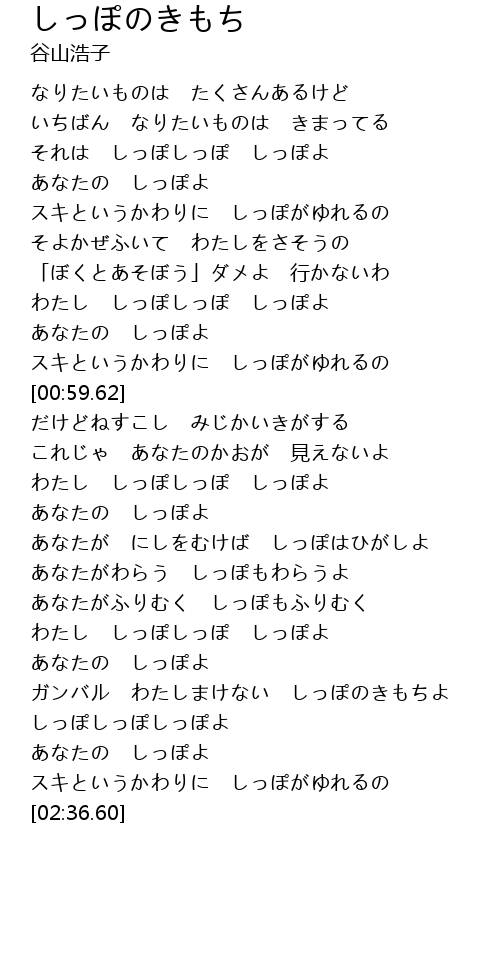 しっぽのきもち
谷山浩子
なりたいものは　たくさんあるけど
いちばん　なりたいものは　きまってる
それは　しっぽしっぽ　しっぽよ
あなたの　しっぽよ
スキというかわりに　しっぽがゆれるの
そよかぜふいて　わたしをさそうの
「ぼくとあそぼう」ダメよ　行かないわ
わたし　しっぽしっぽ　しっぽよ
あなたの　しっぽよ
スキというかわりに　しっぽがゆれるの
[00:59.62]
だけどねすこし　みじかいきがする
これじゃ　あなたのかおが　見えないよ
わたし　しっぽしっぽ　しっぽよ
あなたの　しっぽよ
あなたが　にしをむけば　しっぽはひがしよ
あなたがわらう　しっぽもわらうよ
あなたがふりむく　しっぽもふりむく
わたし　しっぽしっぽ　しっぽよ
あなたの　しっぽよ
ガンバル　わたしまけない　しっぽのきもちよ
しっぽしっぽしっぽよ
あなたの　しっぽよ
スキというかわりに　しっぽがゆれるの
[02:36.60]